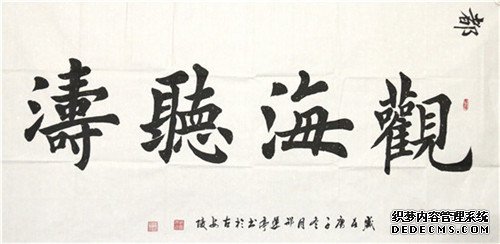 都
觀海聽濤
歲在庚子冬月 书於古安陵
织梦内容管理系统
DEDECMS.COM